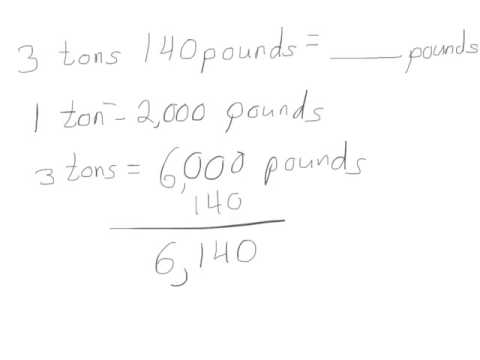 3 tons 140 pounds = ____ pounds
1 ton = 2,000 pounds
3 tons = 6,000 pounds
140
6,140